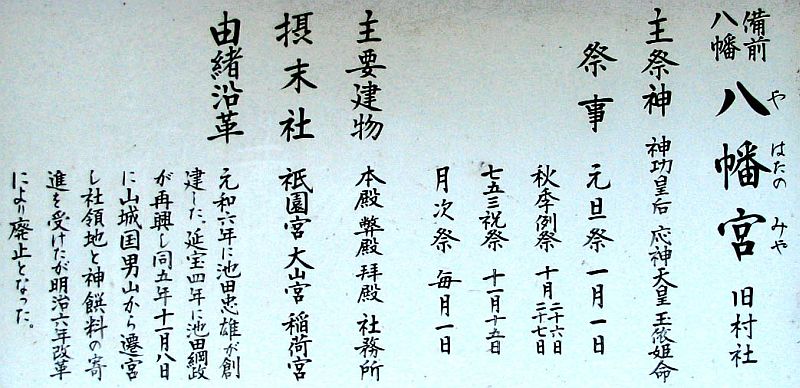 備前
八幡
八幡宮 旧村社
や はたの みや
主祭神 神功皇后 応神天皇 玉依姫命
祭事 元旦祭 一月一日
秋季例祭 十月二十六日 二十七日
七五三祝祭 十一月十五日
月次祭 毎月一日
主要建物 本殿 弊殿 拝殿 社務所
摂末社 祇園宮 大山宮 稲荷宮
由緒沿革 元和六年に池田忠雄が創
建した、延宝四年に池田綱政
が再興し同五年十一月八日
に山城国男山から遷宮
し社領地と神饌料の寄
進を受けたが明治六年改革
により廃止となった。